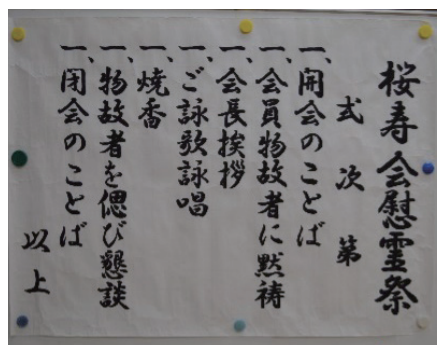 桜寿会慰霊祭
式次第
一、開会のことば
一、会員物故者に黙祷
一、会長挨拶
一、ご詠歌詠唱
一、焼香
一、物故者を偲び懇談
一、閉会のことば
以上